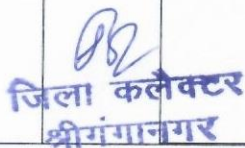 जिला कलैक्टर
श्रीगंगानगर